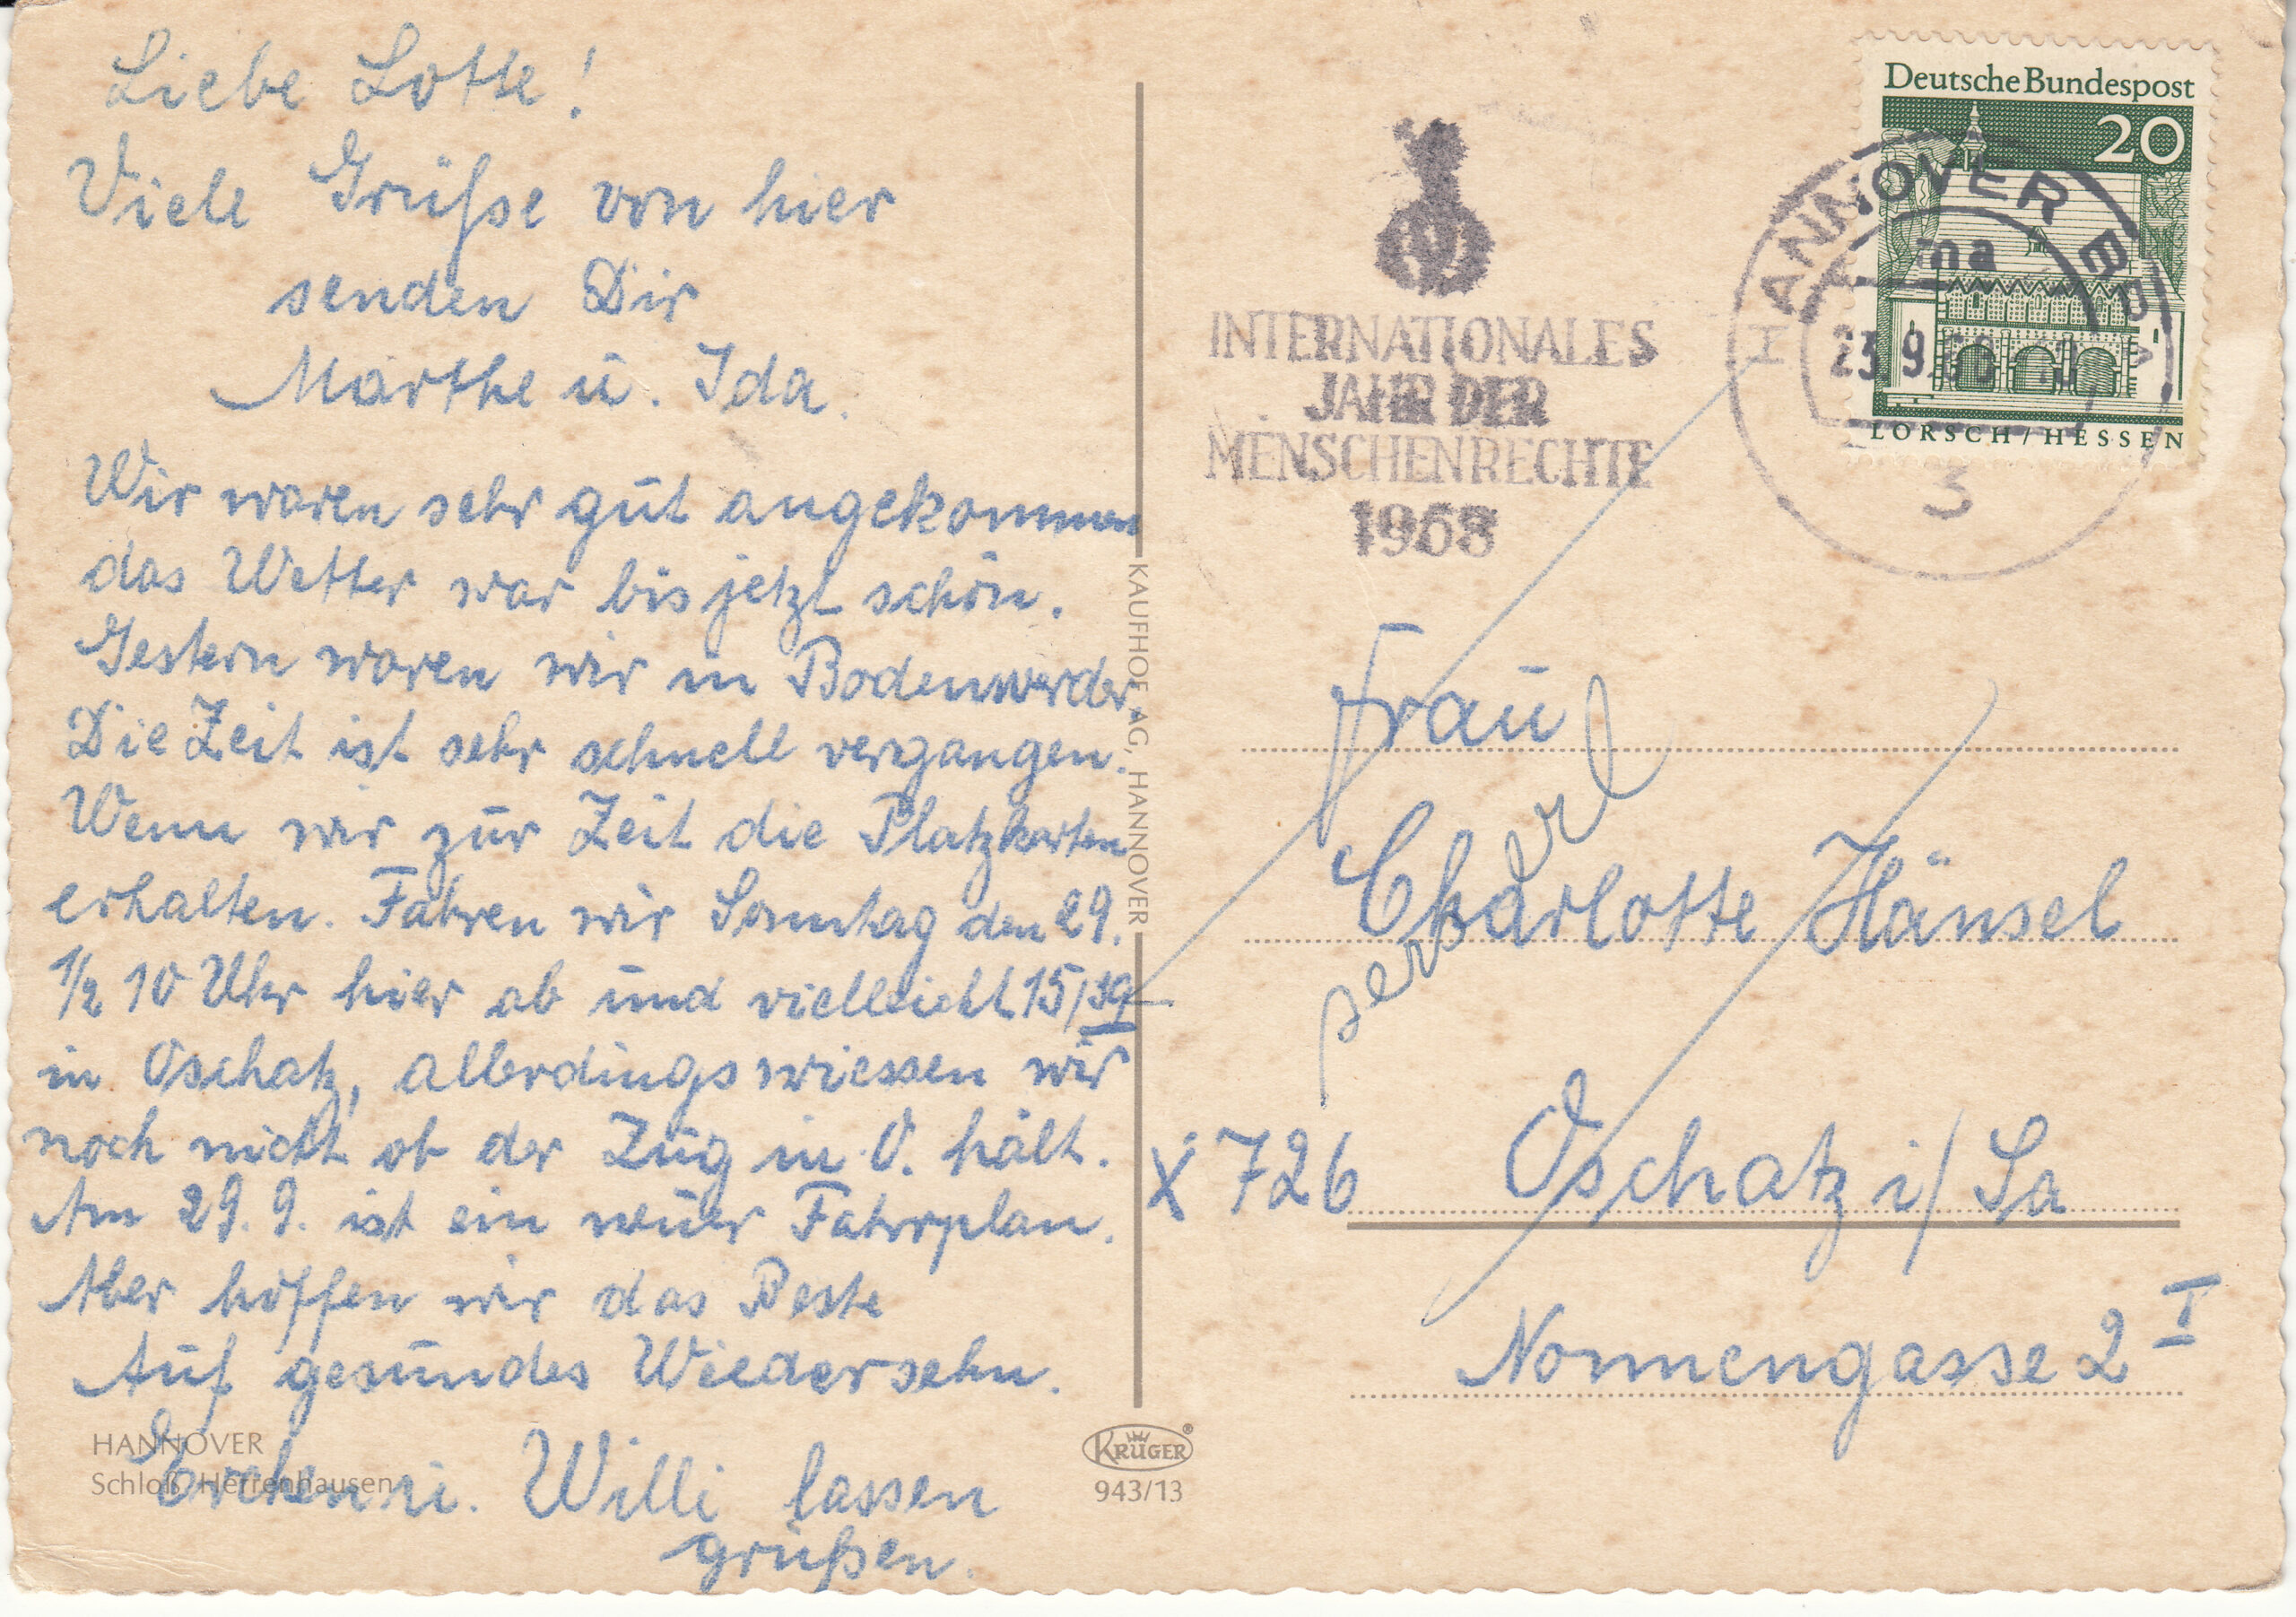 Liebe Lotte!
Viele Grüße von hier
senden Dir
Marthe u. Ida.
Wir waren sehr gut angekommen
das Wetter war bis jetzt schön.
Gestern waren wir in Bodenwerder.
Die Zeit ist sehr schnell vergangen.
Wenn wir zur Zeit die Platzkarten
erhalten. Fahren wir Sonntag den 29.
1/2 10 Uhr hier ab und vielleicht 15/39
in Oschatz, allerdings wiessen wir
noch nicht ob der Zug in O. hält.
Am 29. 9. ist ein neuer Fahrplan.
Aber hoffen wir das Beste
Auf gesundes Wiedersehn.
u. Willi lassen
grüßen.
HANNOVER
Schloß Herrenhausen
KAUFHOF AG, HANNOVER
KRÜGER®
943/13
INTERNATIONALES
JAHR DER
MENSCHENRECHTE
1968
Deutsche Bundespost
20
LORSCH/HESSEN
HANNOVER BPA
ma
23.9.68
3
Frau
Charlotte Hänsel
X 726 Oschatz i/Sa
Nonnengasse 2 I